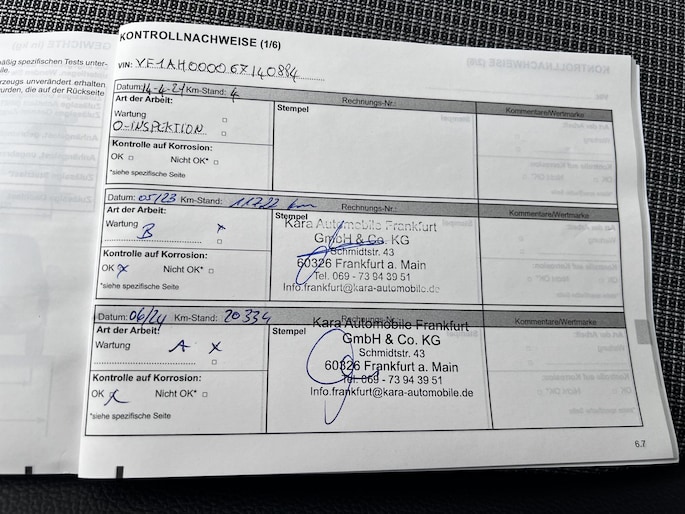 mäßig spezifischen Tests unter-
KONTROLLNACHWEISE (1/6)
VIN: VF1AH000067140894
Datum: 14-4-21 Km-Stand: 4 Rechnungs-Nr.:
Art der Arbeit: Stempel Kommentare/Wertmarke
Wartung
0-INSPEKTION
Kontrolle auf Korrosion:
OK Nicht OK*
*siehe spezifische Seite
Datum: 05/23 Km-Stand: km Rechnungs-Nr.:
Art der Arbeit: Stempel Kommentare/Wertmarke
Wartung x
B
Kontrolle auf Korrosion:
OK x Nicht OK*
*siehe spezifische Seite
Kara Automobile Frankfurt
GmbH & Co. KG
Schmidtstr. 43
60326 Frankfurt a. Main
Tel. 069 - 73 94 39 51
Info.frankfurt@kara-automobile.de
Datum: 06/24 Km-Stand: 20334 Rechnungs-Nr.:
Art der Arbeit: Stempel Kommentare/Wertmarke
Wartung A x
Kontrolle auf Korrosion:
OK x Nicht OK*
*siehe spezifische Seite
Kara Automobile Frankfurt
GmbH & Co. KG
Schmidtstr. 43
60326 Frankfurt a. Main
Tel. 069 - 73 94 39 51
Info.frankfurt@kara-automobile.de
6.7